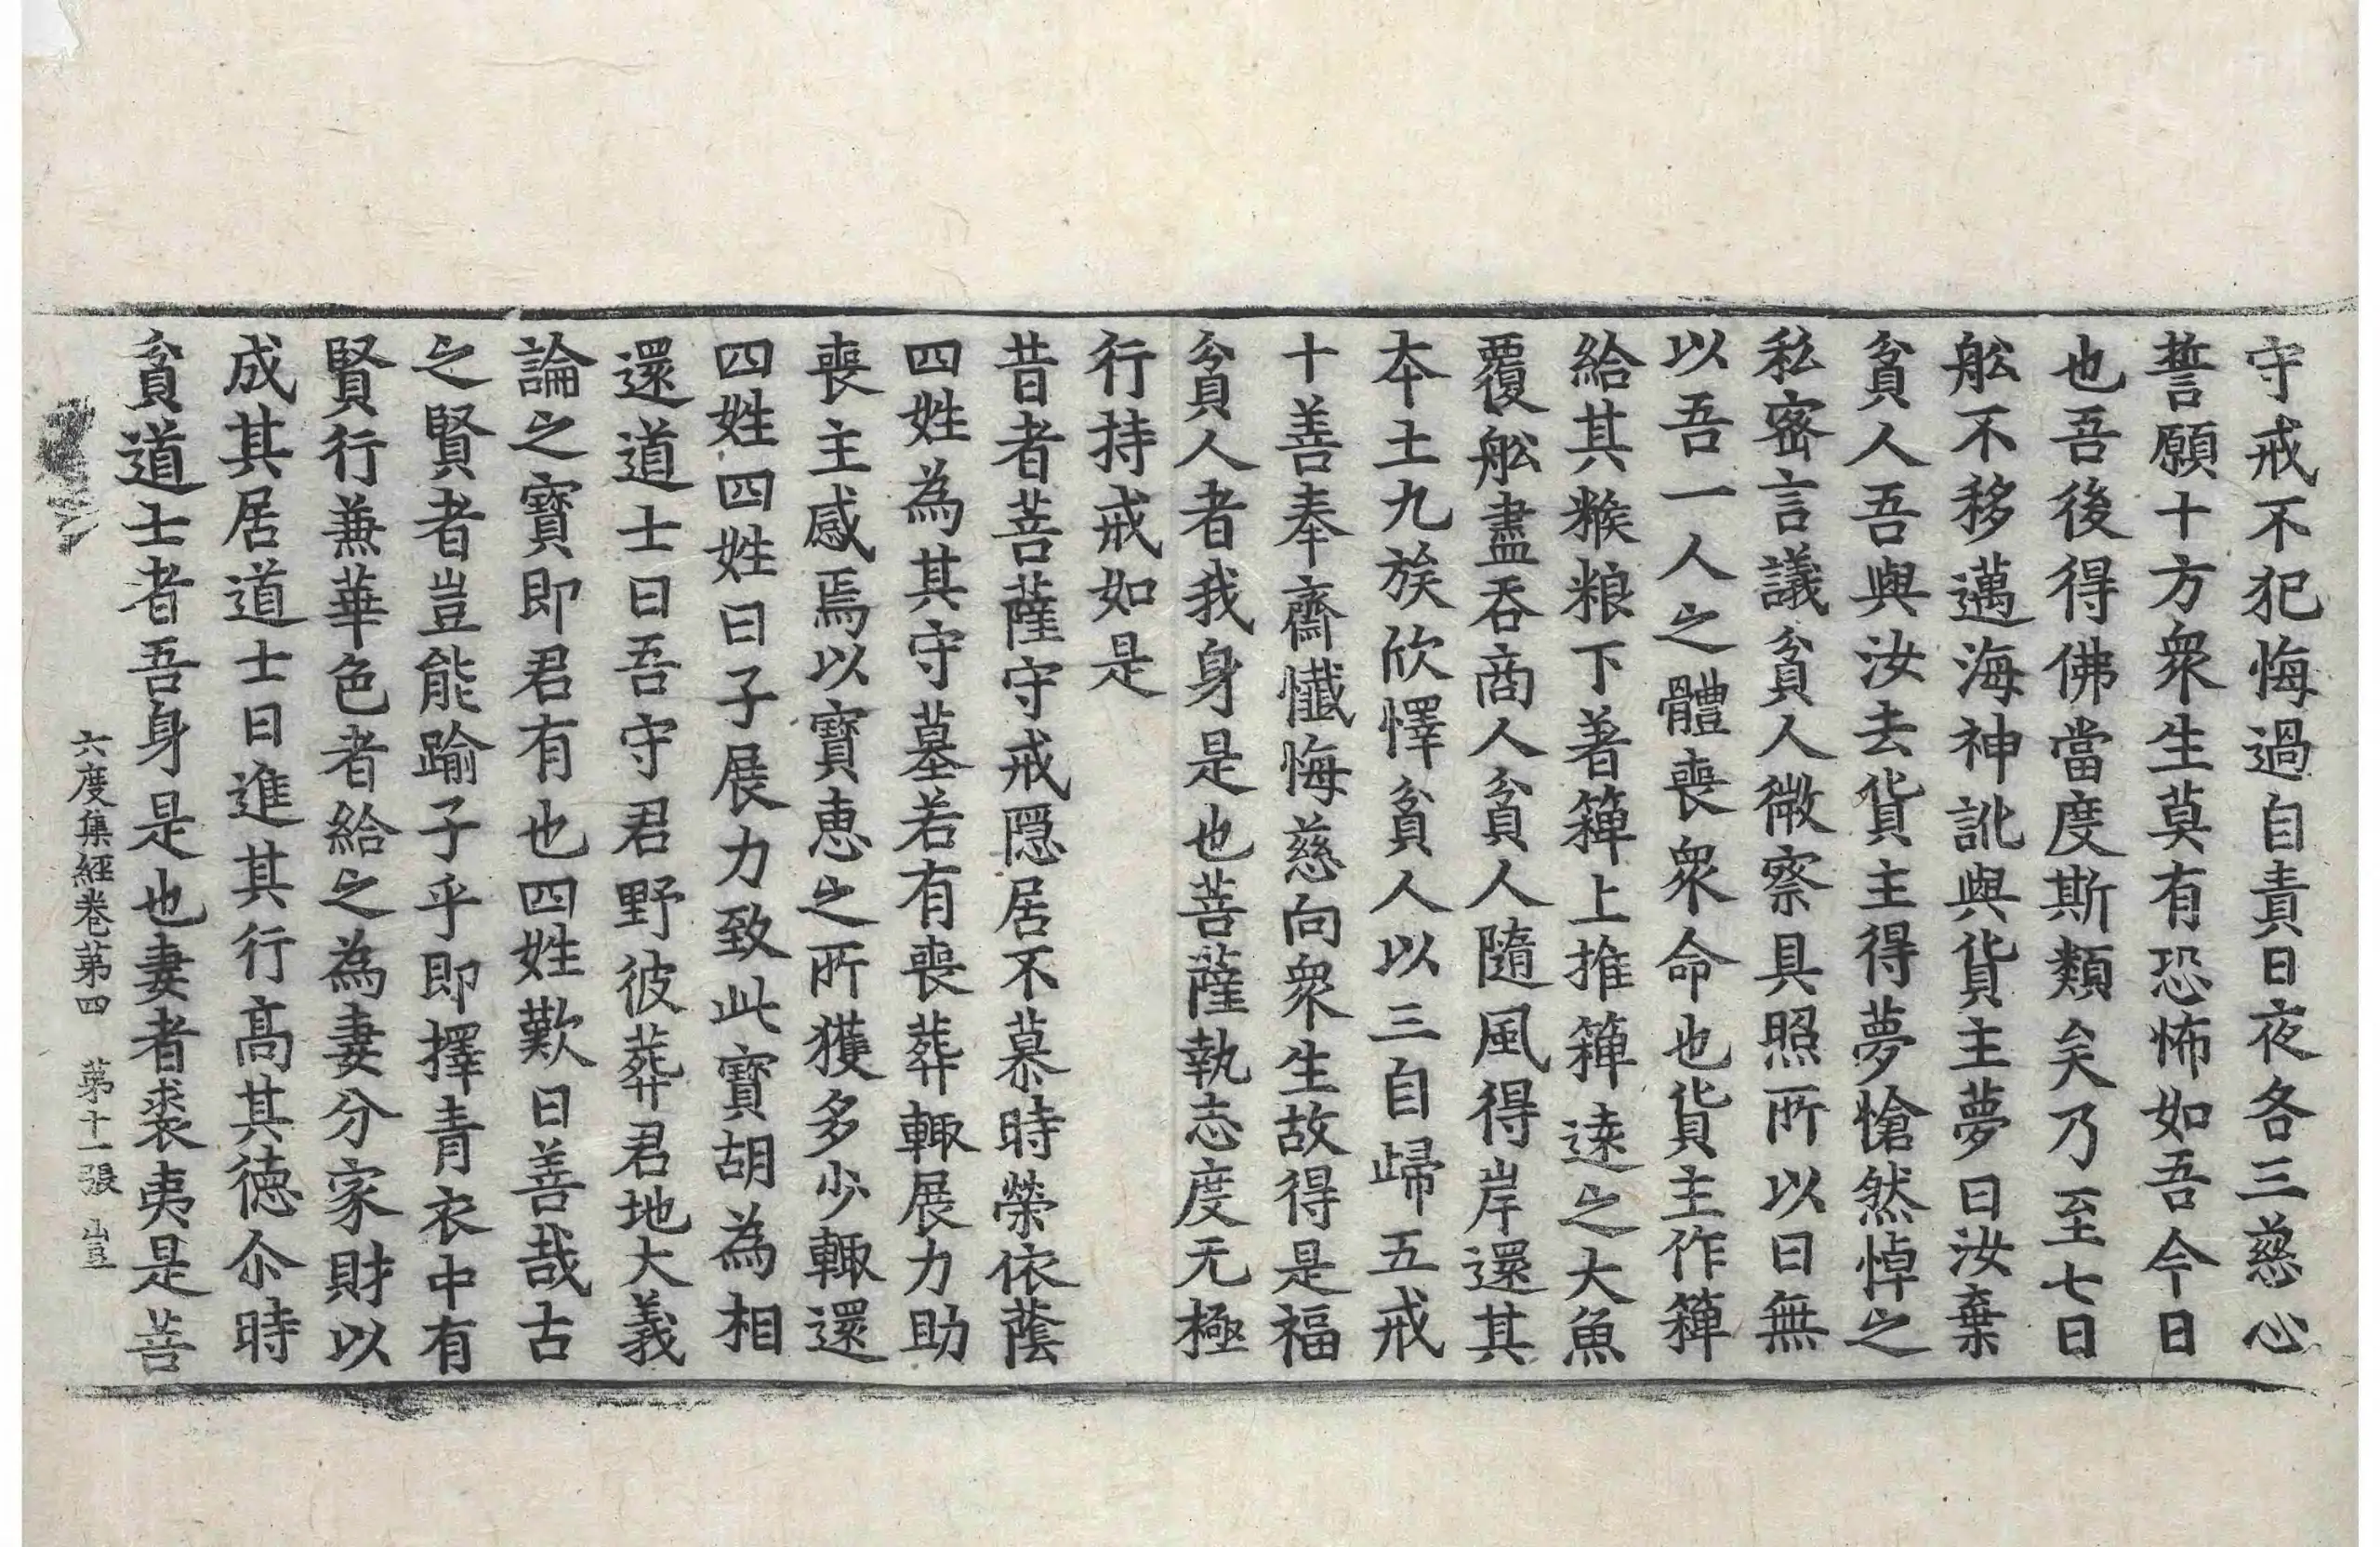 守戒不犯悔過自責日夜各三慈心
誓願十方衆生莫有恐怖如吾今日
也吾後得佛當度斯類矣乃至七日
舩不移邁海神訛與貨主夢曰汝棄
貧人吾與汝去貨主得夢愴然悼之
私密言議貧人微察具照所以曰無
以吾一人之體喪衆命也貨主作簰
給其糇粮下著簰上推簰遠之大魚
覆舩盡吞商人貧人隨風得岸還其
夲土九族欣懌貧人以三自歸五戒
十善奉齋懺悔慈向衆生故得是福
貧人者我身是也菩薩執志度无極
行持戒如是
昔者菩薩守戒隱居不慕時榮依蔭
四姓為其守墓若有喪葬輙展力助
喪主感焉以寶惠之所獲多少輙還
四姓四姓曰子展力致此寶胡為相
還道士曰吾守君野彼葬君地大義
論之寶即君有也四姓歎曰善哉古
之賢者豈能踰子乎即擇青衣中有
賢行兼華色者給之為妻分家財以
成其居道士曰進其行高其德尒時
貧道士者吾身是也妻者裘夷是菩
六度集經卷第四　第十一張　豈